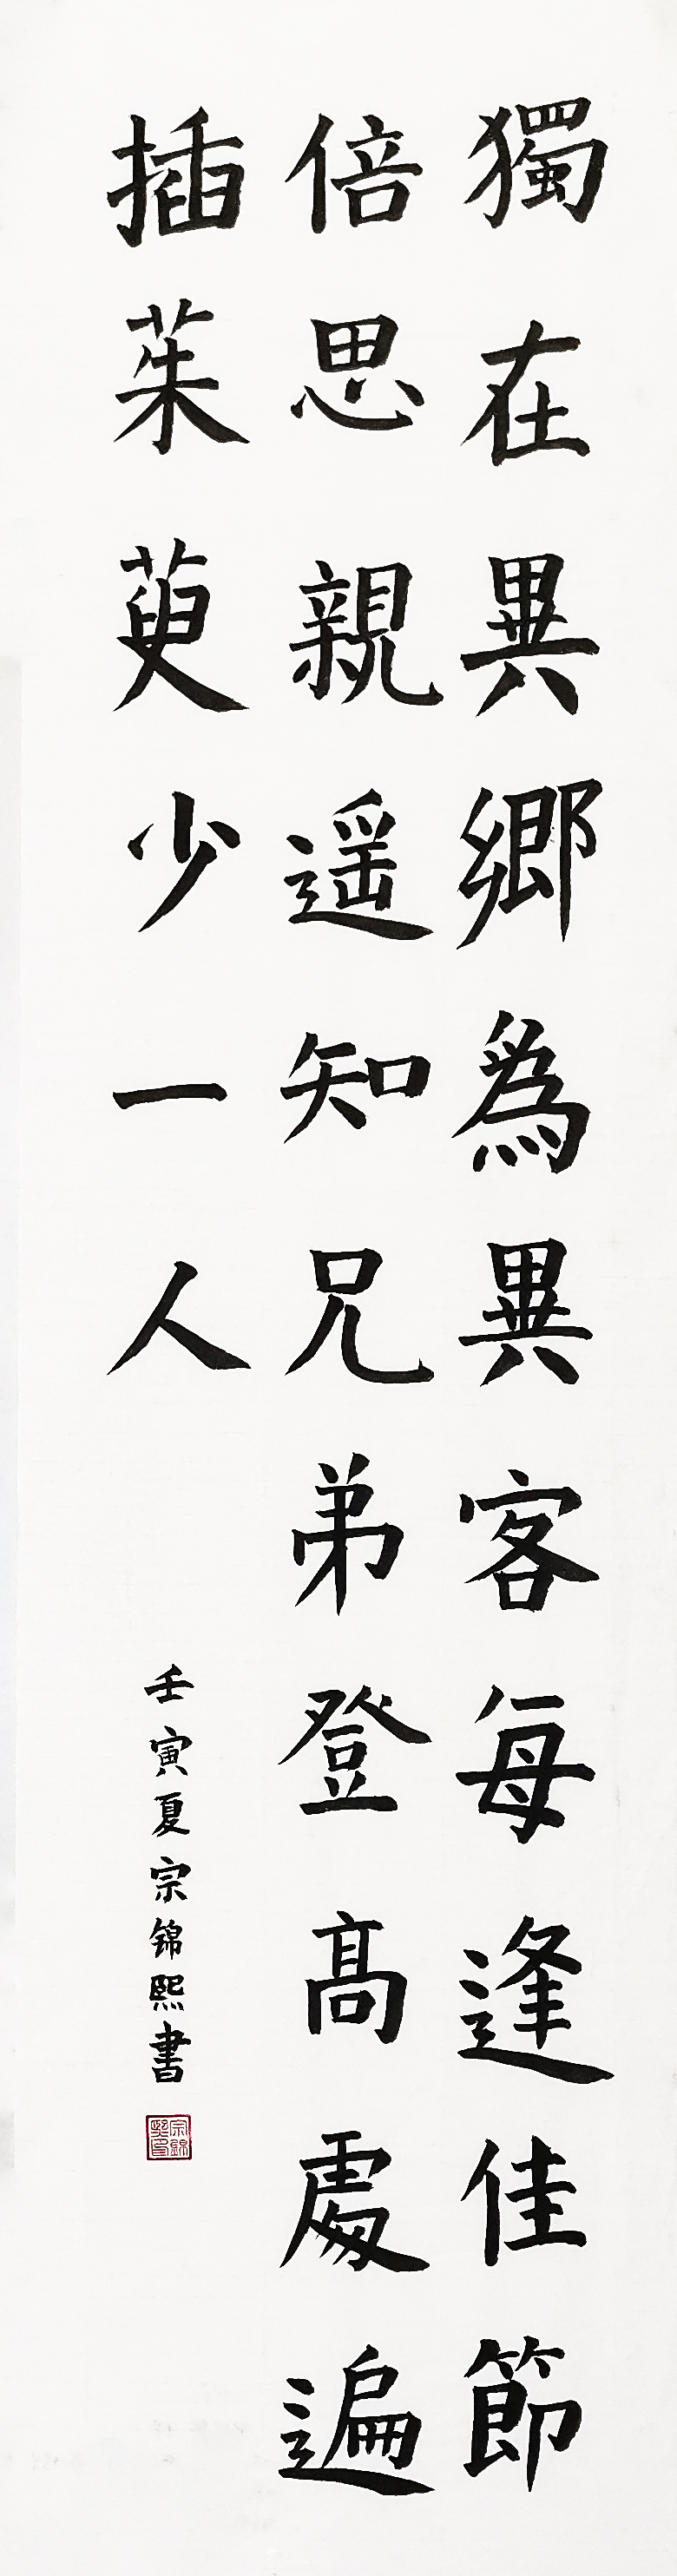 獨在異鄉為異客每逢佳節
倍思親遥知兄弟登髙處遍
插茱萸少一人
壬寅夏宗錦熙書